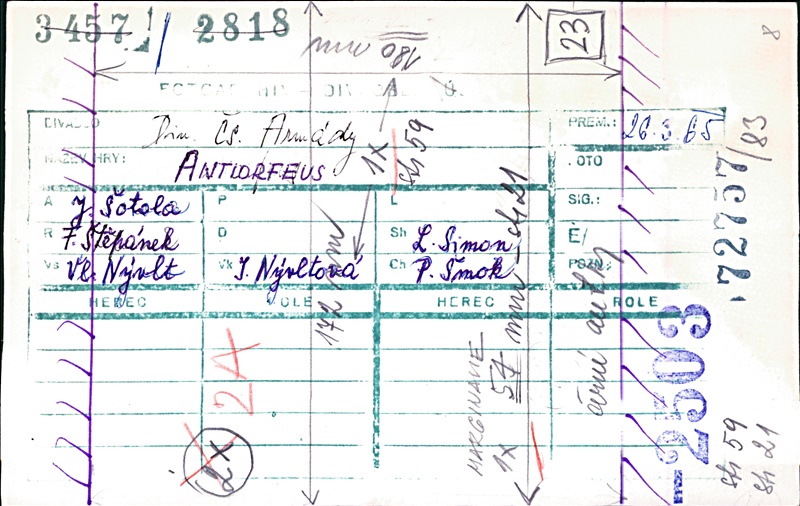 3457 / 2818
180 mm
23
8
DIVADLO Div. Čs. Armády PREM.: 26.3.65
NÁZEV HRY: ANTIORFEUS FOTO
A J. Šotola P L SIG.:
R F. Štěpánek D Sh L. Simon Č/
Vs Vl. Nývlt Vk J. Nývltová Ch P. Šmok POZN.:
HEREC ROLE HEREC ROLE
1X str 59
172 mm
MARGINANE
1x 57 mm - str 21
2A
2x
72757/83
2503
str 59
str 21